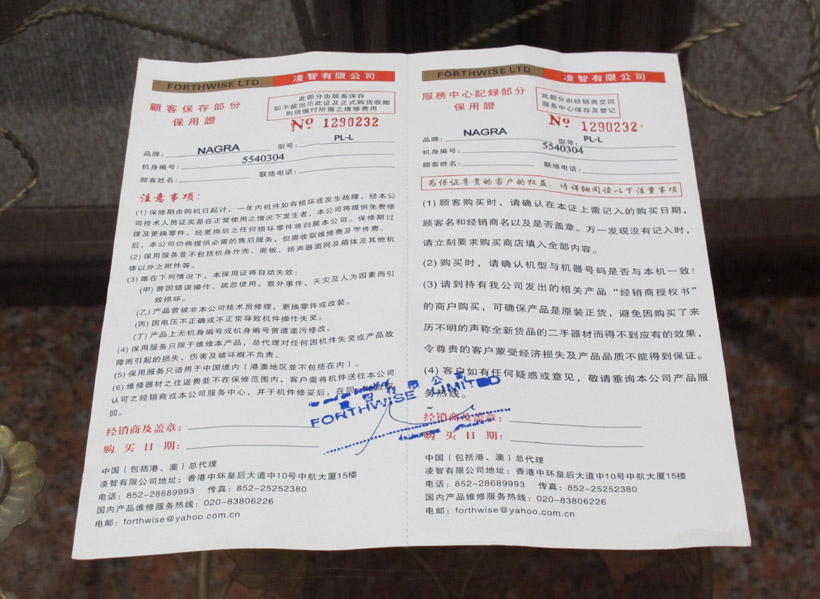 FORTHWISE LTD. 凌智有限公司
顧客保存部份
保用證
此部分由顧客保存
如不能出示此证及正式购货收据
则须缴付所需之维修费用
Nº 1290232
品牌: NAGRA 型号: PL-L
机身編号: 5540304
顧客姓名: 联络电话:
注意事项:
(1) 保修期由购机日起计，一年内机件如有损坏或发生故障，经本公
司技术人员证实是在正常使用之情况下发生者，本公司将提供免费修
理及更换零件，经更换后之任何损坏零件将归属本公司。保修期过
后，本公司仍将提供必需的售后服务，但需收取维修费及零件费。
(2) 保用服务並不包括机身外壳、面板、扬声器面网及箱体及其他机
体以外之附件等。
(3) 谁在下列情况下，本保用证将自动失效:
(甲) 曾因错误操作、疏忽使用、意外事件、天灾及人为因素而引
致损坏。
(乙) 产品曾被非本公司技术员修理，更换零件或改装。
(丙) 因电压不正确或不正常导致机件操作失灵。
(丁) 产品上无机身编号或机身编号曾遭塗污修改。
(4) 保用服务只限于维修本产品，总代理对任何因机件失灵或产品故
障而引起的损失，伤害及破坏概不负责。
(5) 保用服务只适用于中国境内 (港澳地区並不包括在内)。
(6) 维修器材之往返费並不在保修范围内，客户需将机件送往本公司
认可之经销商或本公司服务中心，并于机件修妥后，在
回。
经销商及盖章:
购买日期:
中国 (包括港、澳) 总代理
凌智有限公司地址: 香港中环皇后大道中10号中航大厦15楼
电话: 852-28689993 传真: 852-25252380
国内产品维修服务热线: 020-83806226
电邮: forthwise@yahoo.com.cn
FORTHWISE LTD. 凌智有限公司
服務中心記録部分
保用證
此部分由经销商交回
服务中心保存及登记
Nº 1290232
品牌: NAGRA 型号: PL-L
机身編号: 5540304
顧客姓名: 联络电话:
为保证尊贵的客户的权益，请详细阅读以下注重事项
(1) 顧客购买时，请确认在本证上需记入的购买日期，
顧客名和经销商名以及是否盖章。万一发现没有记入时，
请立刻要求购买商店填入全部内容。
(2) 购买时，请确认机型与机器号码是否与本机一致!
(3) 请到持有我公司发出的相关产品“经销商授权书”
的商户购买，可确保产品是原装正货，避免因购买了来
历不明的声称全新货品的二手器材而得不到应有的效果，
令尊贵的客户蒙受经济损失及产品品质不能得到保证。
(4) 客户如有任何疑惑或意见，敬请垂询本公司产品服
务热线。
有限公司
FORTHWISE LIMITED
经销商及盖章:
购买日期:
中国 (包括港、澳) 总代理
凌智有限公司地址: 香港中环皇后大道中10号中航大厦15楼
电话: 852-28689993 传真: 852-25252380
国内产品维修服务热线: 020-83806226
电邮: forthwise@yahoo.com.cn